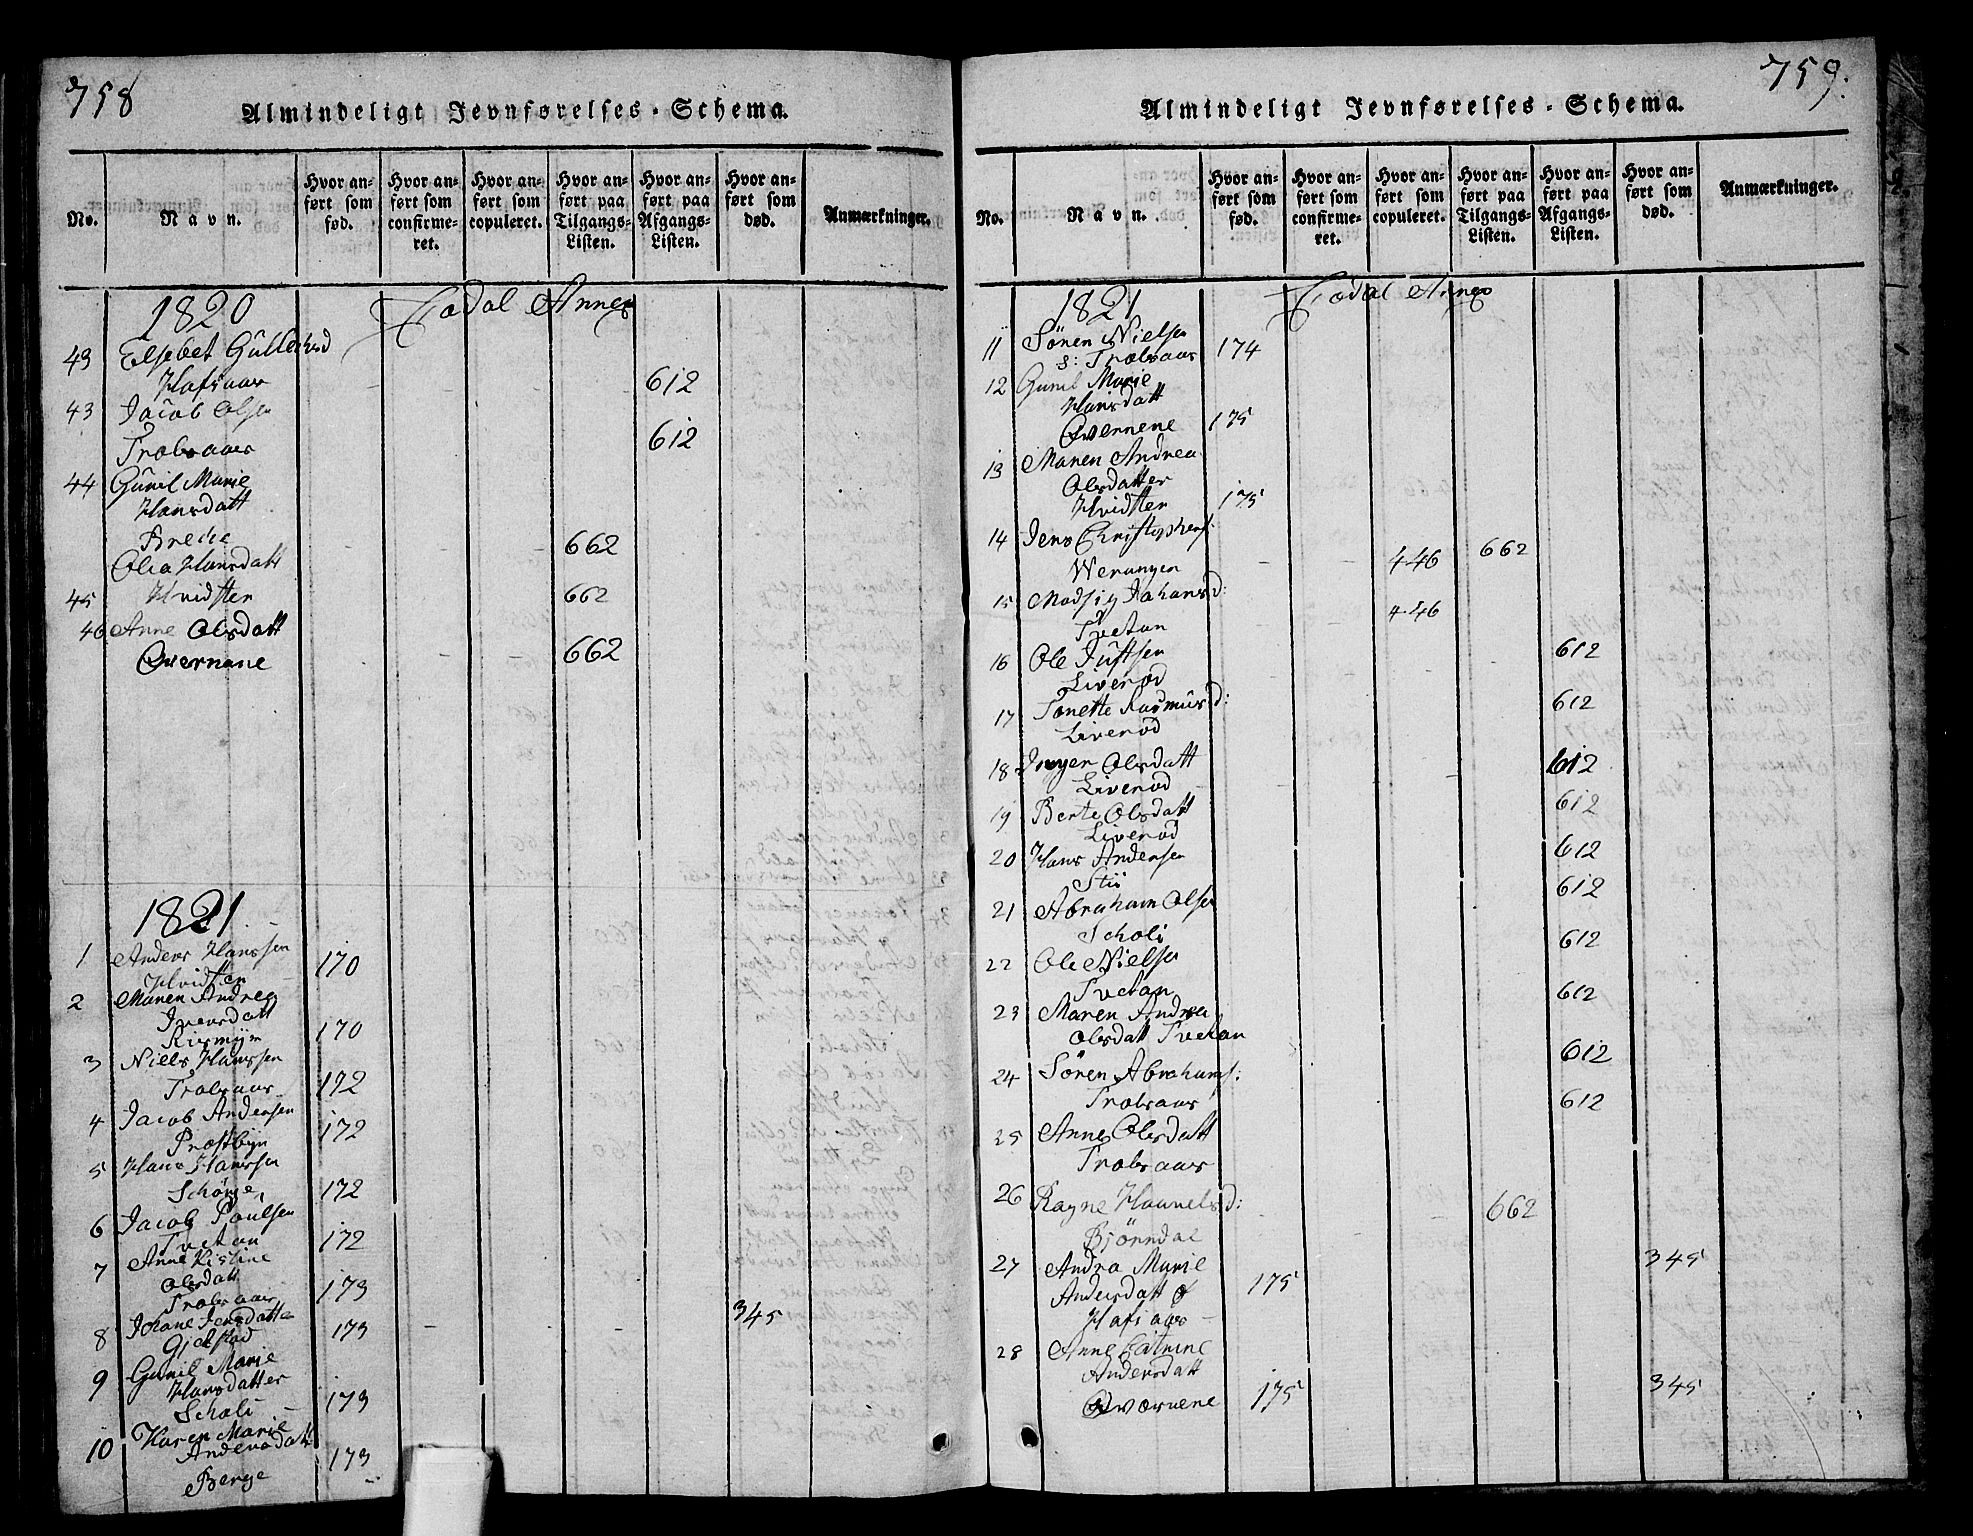 758
Almindeligt Jevnførelses-Schema.
No.
Navn.
Hvor anført som fød.
Hvor anført som confirmeret.
Hvor anført som copuleret.
Hvor anført paa Tilgangs-Listen.
Hvor anført paa Afgangs-Listen.
Hvor anført som død.
Anmærkninger.
1820
Annex
43 Elsebet
Hafsaas 612
43 Jacob Olsen
Trolsaas 612
44 Gunil Marie
Hansdatt
662
Olea Hansdatt
45 Hvidsten 662
46 Anne Olsdatt
Qvernene 662
1821
1 Anders Hanssen
Hvidsten 170
2 Maren Andrea
Iversdatt
170
3 Niels Hanssen
Trolsaas 172
4 Jacob Andersen
Præstbyn 172
5 Hans Hanssen
172
6 Jacob Poulsen
Tvetan 172
7 Anne Kistine
Olsdatt
Trolsaas 173
8 Johane Jensdatter
173 345
9 Gunil Marie
Hansdatter
Scholi 173
10 Karen Marie
Andersdatt
Berge 173
759.
Almindeligt Jevnførelses-Schema.
No.
Navn.
Hvor anført som fød.
Hvor anført som confirmeret.
Hvor anført som copuleret.
Hvor anført paa Tilgangs-Listen.
Hvor anført paa Afgangs-Listen.
Hvor anført som død.
Anmærkninger.
1821
Annex
11 Sören Nielsen
Trolsaas 174
12 Gunil Marie
Hansdatt
Qvernene 175
13 Maren Andrea
Olsdatter
Hvidsten 175
14 Jens Christophers:
446 662
15 Johansd:
Tvetan 446
16 Ole Justsen 612
Liverød
17 Tonette Rasmusd: 612
Liverød
18 Inger Olsdatt 612
Liverød
19 Berte Olsdatt 612
Liverød
20 Hans Andersen 612
612
21 Abraham Olsen
Scholi 612
22 Ole Nielsen
Tvetan 612
23 Maren Andrea
Olsdatt Tvetan
612
24 Sören Abrahams:
Trolsaas 612
25 Anne Olsdatt
Trolsaas
26 662
Bjørndal
27 Andra Marie 345
Andersdatt 175
Hafsaas
28 Anne Catrine
Andersdatt
Qværnene 175 345